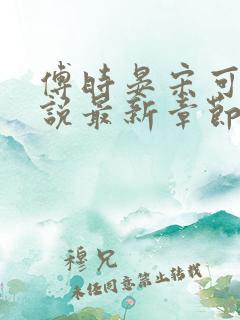 傅时晏宋可
说最新章节
穆兄
未经同意禁止转载